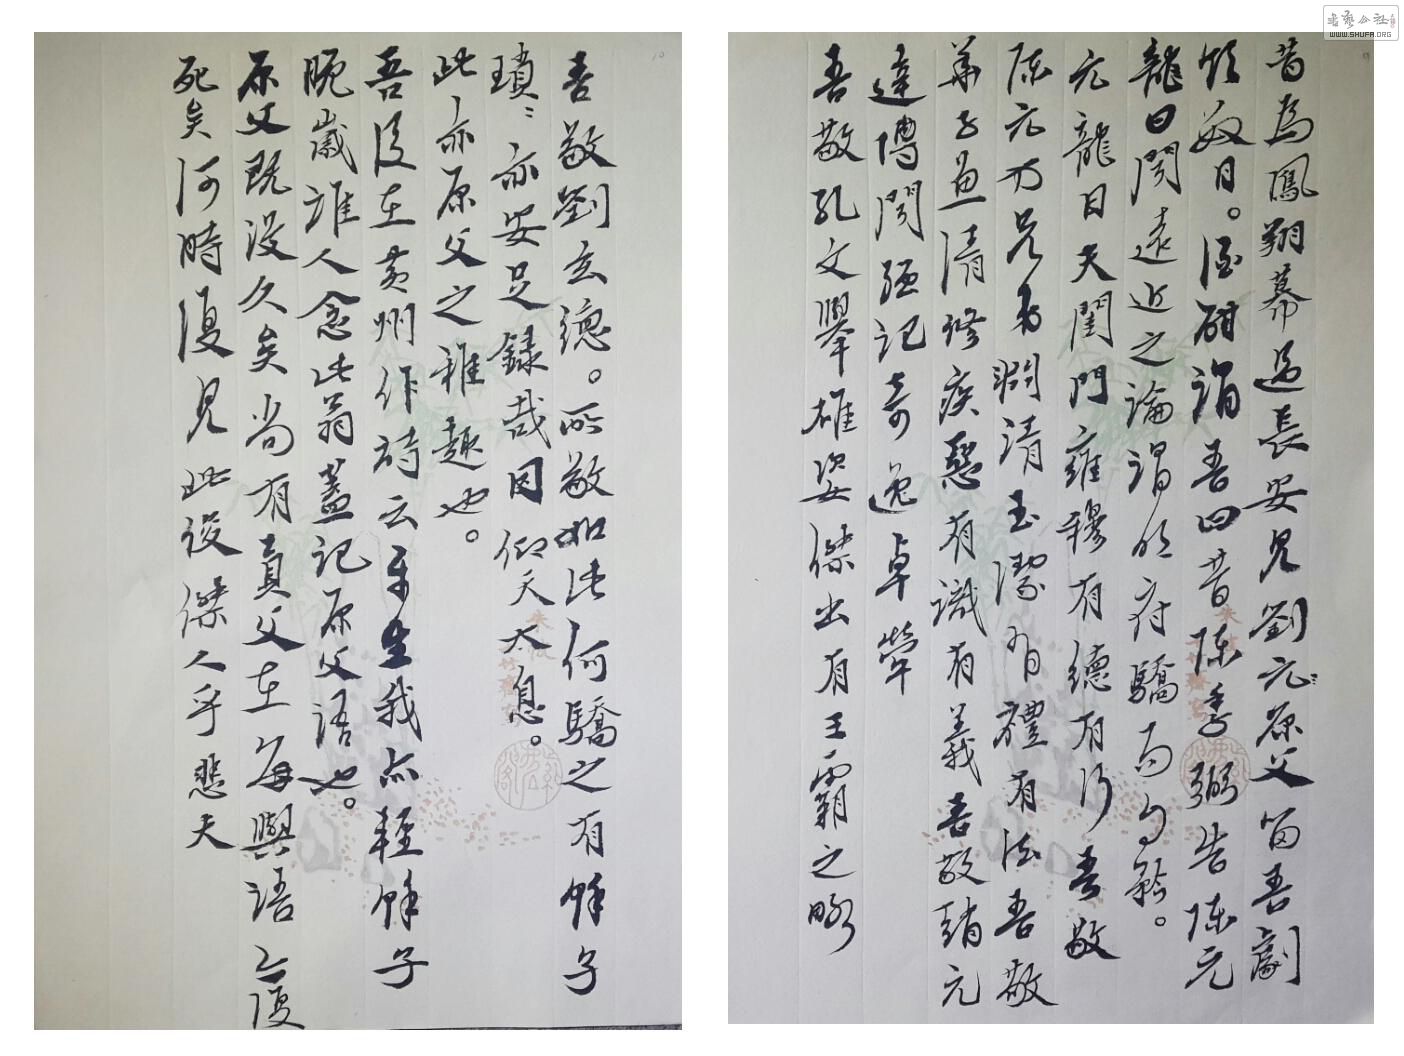 昔為鳳翔幕過長安見劉元原父留吾劇
飲數日。酒酣謂吾曰昔陳季弼告陳元
龍曰聞遠近之論謂明府驕而自矜。
元龍曰夫閨門雍穆有德有行吾敬
陳元方兄弟淵清玉潔有禮有法吾敬
華子魚清修疾惡有識有義吾敬趙元
達博聞強記奇逸卓犖
吾敬孔文舉雄姿傑出有王霸之略
吾敬劉玄德。所敬如此何驕之有餘子
瑣々亦安足録哉因仰天太息。
此亦原父之雅趣也。
吾後在黄州作詩云平生我亦輕餘子
晚歲誰人念此翁蓋記原父語也。
原父既没久矣尚有貢父在每與語今復
死矣何時復見此俊傑人乎悲夫
書藝公社
WWW.SHUFA.ORG